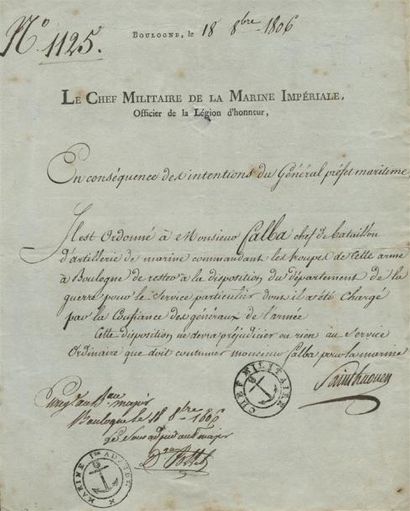 N° 1125.
BOULOGNE, le 18 8bre 1806
LE CHEF MILITAIRE DE LA MARINE IMPÉRIALE,
Officier de la Légion d'honneur,
En conséquence des intentions du Général préfet maritime
Il est Ordonné à Monsieur Calba chef de bataillon
d'artillerie de marine commandant les troupes de cette arme
à Boulogne de rester à la disposition du département de la
guerre pour le Service particulier dont il a été Chargé
par la Confiance des généraux de l'armée
Cette disposition ne devra préjudicier en rien au Service
Ordinaire que doit continuer monsieur Calba pour la marine
CHEF MILITAIRE
Enregt. au Bau. major
Boulogne le 18 8bre 1806
Le Sous adjudant major
MARINE